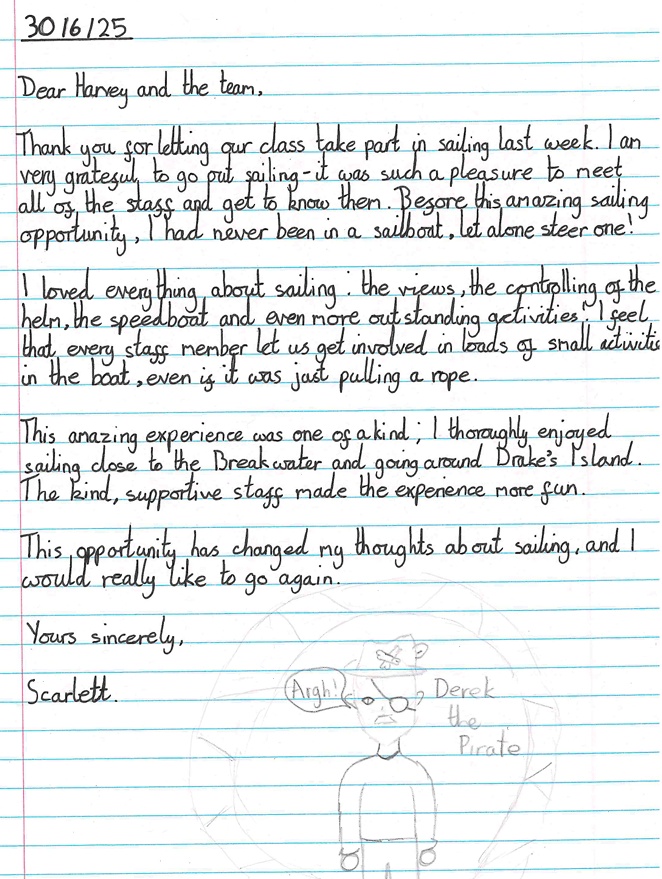 30/6/25
Dear Harvey and the team,
Thank you for letting our class take part in sailing last week. I am
very grateful to go out sailing - it was such a pleasure to meet
all of the staff and get to know them. Before this amazing sailing
opportunity, I had never been in a sailboat, let alone steer one!
I loved everything about sailing: the views, the controlling of the
helm, the speedboat and even more outstanding activities! I feel
that every staff member let us get involved in loads of small activitis
in the boat, even if it was just pulling a rope.
This amazing experience was one of a kind; I thoroughly enjoyed
sailing close to the Breakwater and going around Drake's Island.
The kind, supportive staff made the experience more fun.
This opportunity has changed my thoughts about sailing, and I
would really like to go again.
Yours sincerely,
Scarlett.
Argh!
Derek
the
Pirate